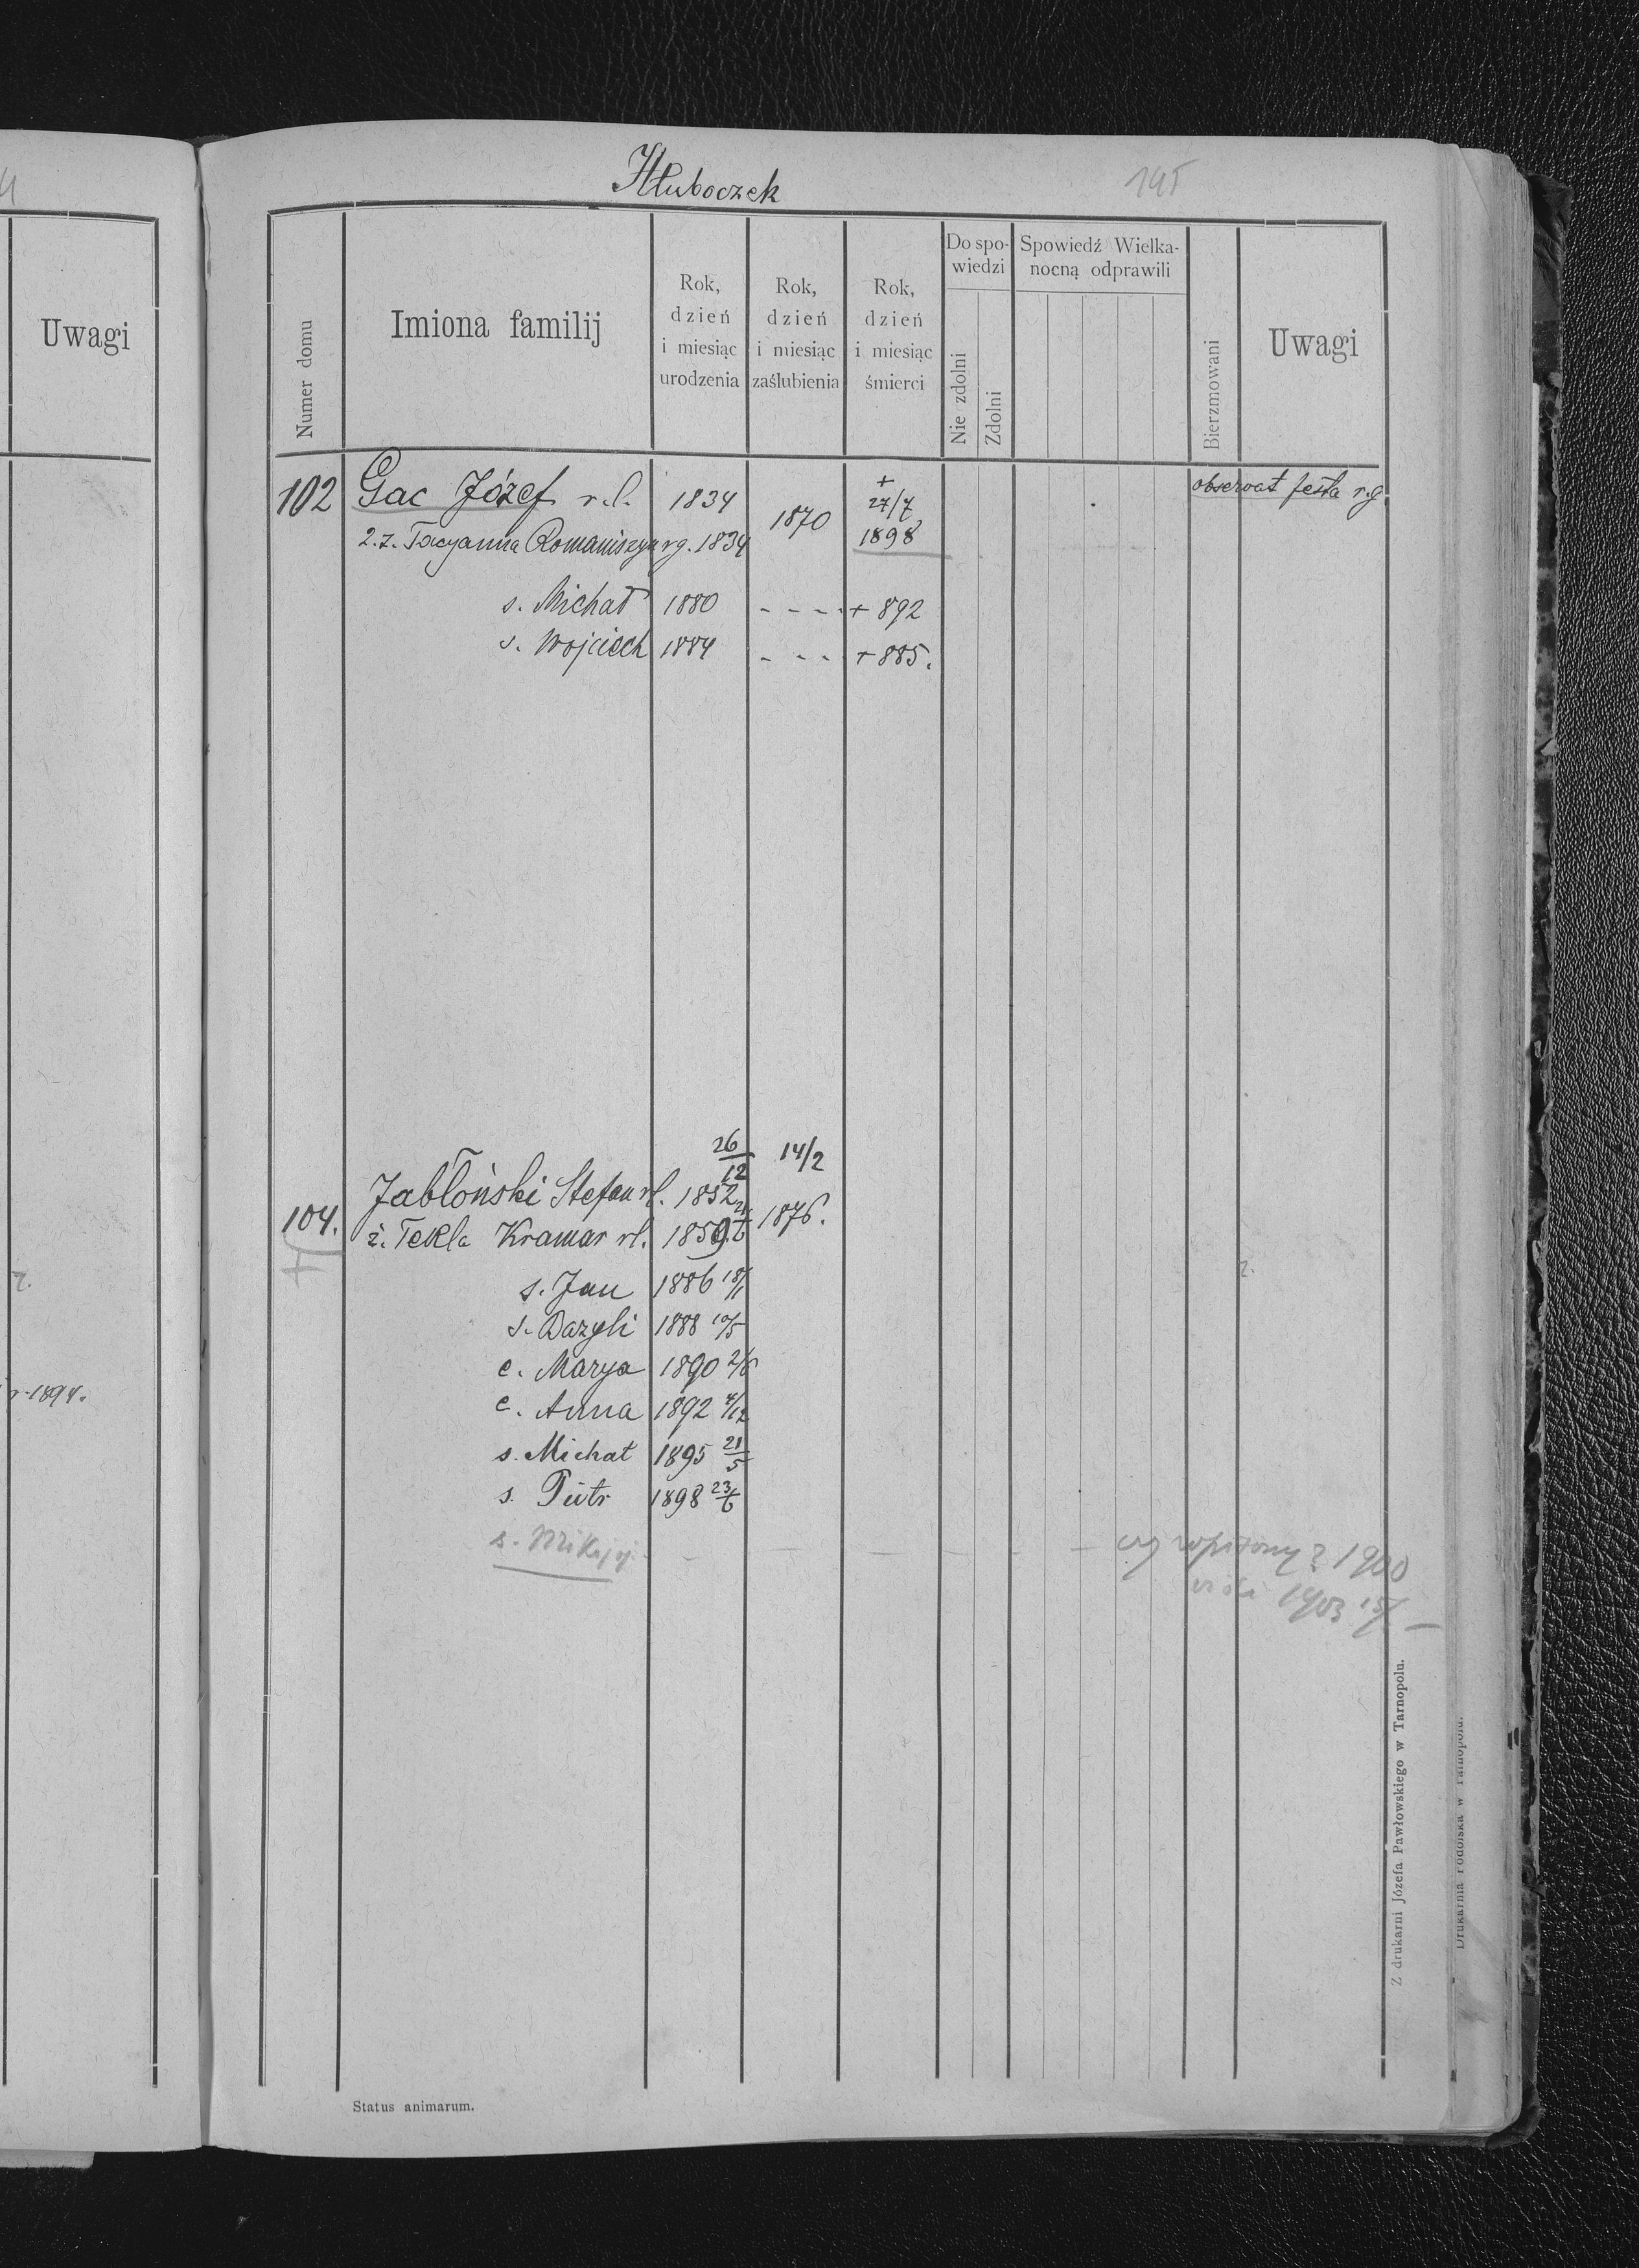 Uwagi
r. 1894.
Hłuboczek
195
Numer domu
Imiona familij
Rok, dzień i miesiąc urodzenia
Rok, dzień i miesiąc zaślubienia
Rok, dzień i miesiąc śmierci
Do spowiedzi
Nie zdolni
Zdolni
Spowiedź Wielkanocną odprawili
Bierzmowani
Uwagi
102 Gac Józef r.l. 1834 1870 + 27/7 1898 observat festa r.g.
2.ż. Tacyanna Romaniszyn rg. 1834
s. Michał 1880 - - - + 892
s. Wojciech 1884 - - - + 885.
104. Jabłoński Stefan rl. 1852 26/12 14/2 1876.
ż. Tekla Kramar rl. 1859
s. Jan 1886 18/1
s. Bazyli 1888 10/5
c. Marya 1890 2/6
c. Anna 1892 4/12
s. Michał 1895 21/5
s. Piotr 1898 23/6
s. Mikołaj - - - - - czy zapisany? 1900
1903 15/
Z drukarni Józefa Pawłowskiego w Tarnopolu.
Drukarnia Podolska w Tarnopolu.
Status animarum.